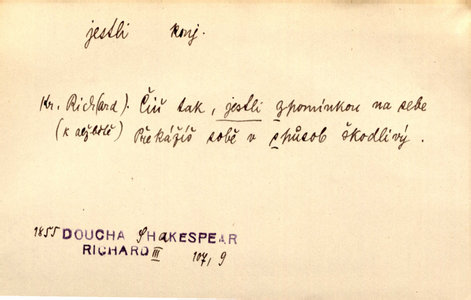 jestli konj.
Kr. Rich(ard). Čiš tak, jestli zpomínkou na sebe
(k Alžbětě) Překážíš sobě v spůsob škodlivý.
1855 DOUCHA SHAKESPEAR
RICHARD III 107, 9